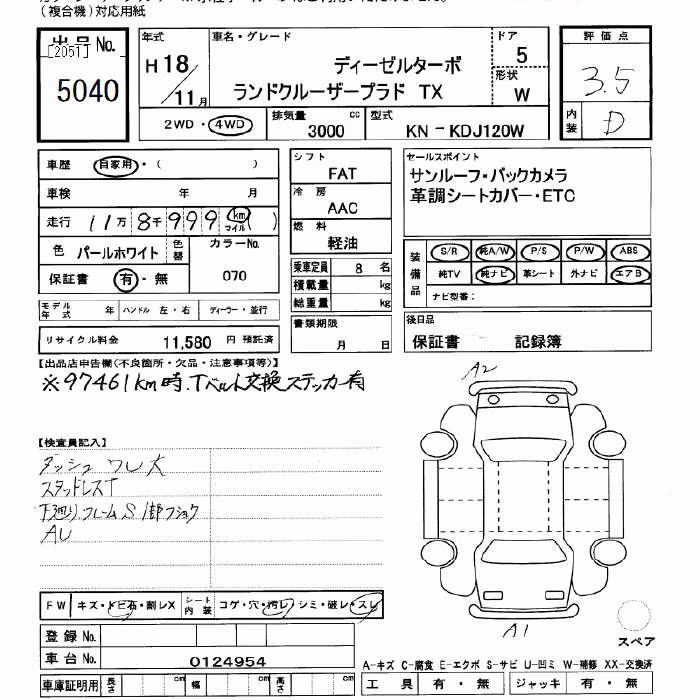 (複合機)対応用紙
出品No.
[2051]
5040
年式
H18/11月
車名・グレード
ディーゼルターボ
ランドクルーザープラド TX
ドア
5
形状
W
2WD・4WD
排気量
3000 cc
型式
KN-KDJ120W
評価点
3.5
内装
D
車歴 自家用・( )
車検 年 月
走行 11万8千999 km マイル( )
色 パールホワイト 色替
カラーNo.
070
保証書 有・無
モデル年式 年 ハンドル 左・右 ディーラー・並行
リサイクル料金 11,580 円 預託済
シフト
FAT
冷房
AAC
燃料
軽油
乗車定員 8 名
積載量 kg
総重量 kg
書類期限
月 日
セールスポイント
サンルーフ・バックカメラ
革調シートカバー・ETC
装備品
S/R 純A/W P/S P/W ABS
純TV 純ナビ 革シート 外ナビ エアB
ナビ型番:
後日品
保証書 記録簿
【出品店申告欄(不良箇所・欠品・注意事項等)】
※97461km時.Tベルト交換ステッカー有
【検査員記入】
ダッシュ ワレ大
スタッドレスT
下廻り.フレームS 1部フショク
AU
A2
A1
スペア
FW キズ・トビ石・割レX
シート内装 コゲ・穴・汚レ・シミ・破レ・スレ
登録No.
車台No. 0124954
A-キズ C-腐食 E-エクボ S-サビ U-凹ミ W-補修 XX-交換済
車庫証明用 長さ cm 幅 cm 高さ cm
工具 有・無 ジャッキ 有・無